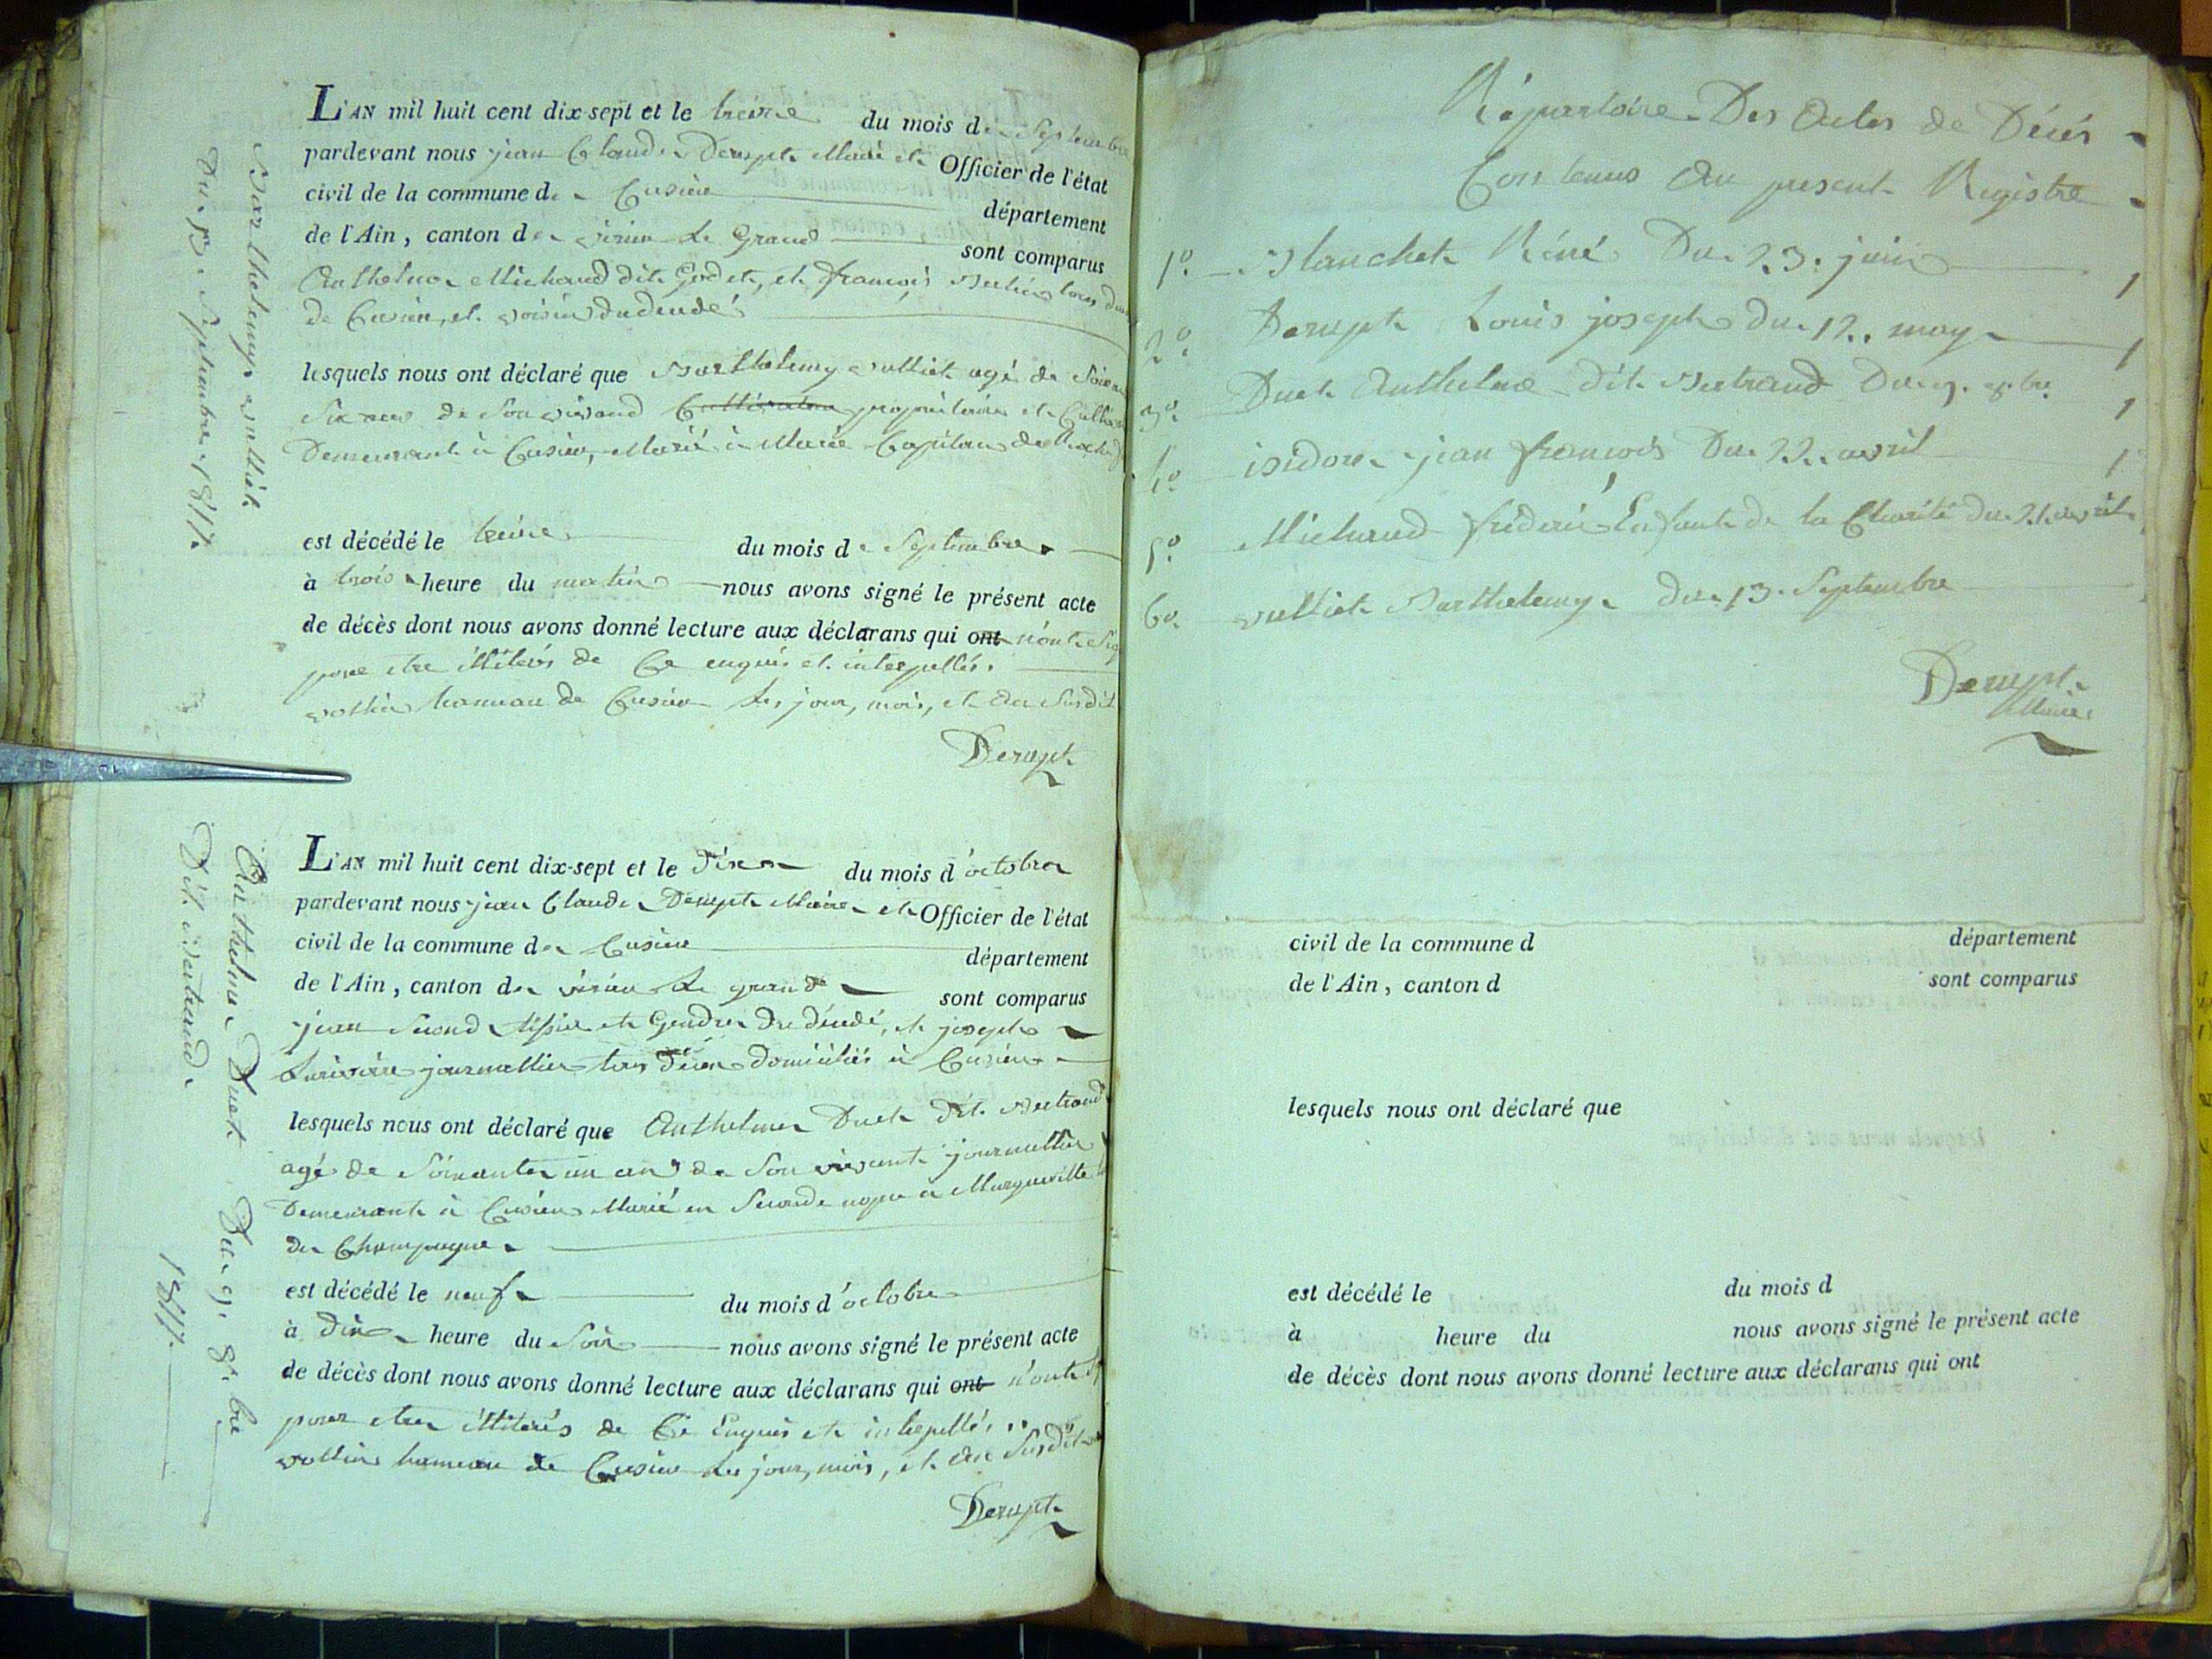 Barthelemy vulliet
Du 13. Septembre 1817.
L'AN mil huit cent dix-sept et le treize du mois de Septembre
pardevant nous jean Claude Derupt Maire et Officier de l'état
civil de la commune de Cuzieu département
de l'Ain, canton de virieu Le Grand sont comparus
Anthelme Michaud dit Godet, et françois tous
de Cuzieu, et voisin du décédé
lesquels nous ont déclaré que Barthelemy vulliet agé de
Six ans de Son vivand Cultivateur propriétaire et
Demeurant à Cuzieu, Marié à Marie
est décédé le treize du mois de Septembre
à trois heure du matin nous avons signé le présent acte
de décès dont nous avons donné lecture aux déclarans qui ont n'ont
pour etre illiterés de Ce enquis et interpellés.
vollien hameau de Cuzieu Les jour, mois, et an Susdit
Derupt
Anthelme Duet Du 9. 8.bre
Dit Bertrand. 1817.
L'AN mil huit cent dix-sept et le dix du mois d'octobre
pardevant nous jean Claude Derupt Maire et Officier de l'état
civil de la commune de Cuzieu département
de l'Ain, canton de virieu Le grand sont comparus
jean Second et Gendre du décédé, et joseph
journallier tous deux domiciliés à Cuzieu
lesquels nous ont déclaré que Anthelme Duet dit Bertrand
agé de Soixante un ans de Son vivant journallier
Demeurant à Cuzieu Marié en Seconde nopce à
de Champagne
est décédé le neuf du mois d'octobre
à Dix heure du Soir nous avons signé le présent acte
de décès dont nous avons donné lecture aux déclarans qui ont n'ont
pour etre illiterés de Ce Enquis et interpellés
vollien hameau de Cuzieu Les jour, mois, et an Susdit
Derupt
Répertoire Des Actes de Décés
Contenus Au present Registre
1º Blanchet Réné Du 23. juin 1
2º Derupt Louis joseph du 12. may 1
3º Duet Anthelme dit Bertrand Du 9. 8bre 1
4º isidore jean françois Du 22. avril 1
5º Michaud fréderic Enfant de la Charité du 21. avril
6º vulliet Barthelemy du 13. Septembre
Derupt
Maire
civil de la commune d département
de l'Ain, canton d sont comparus
lesquels nous ont déclaré que
est décédé le du mois d
à heure du nous avons signé le présent acte
de décès dont nous avons donné lecture aux déclarans qui ont